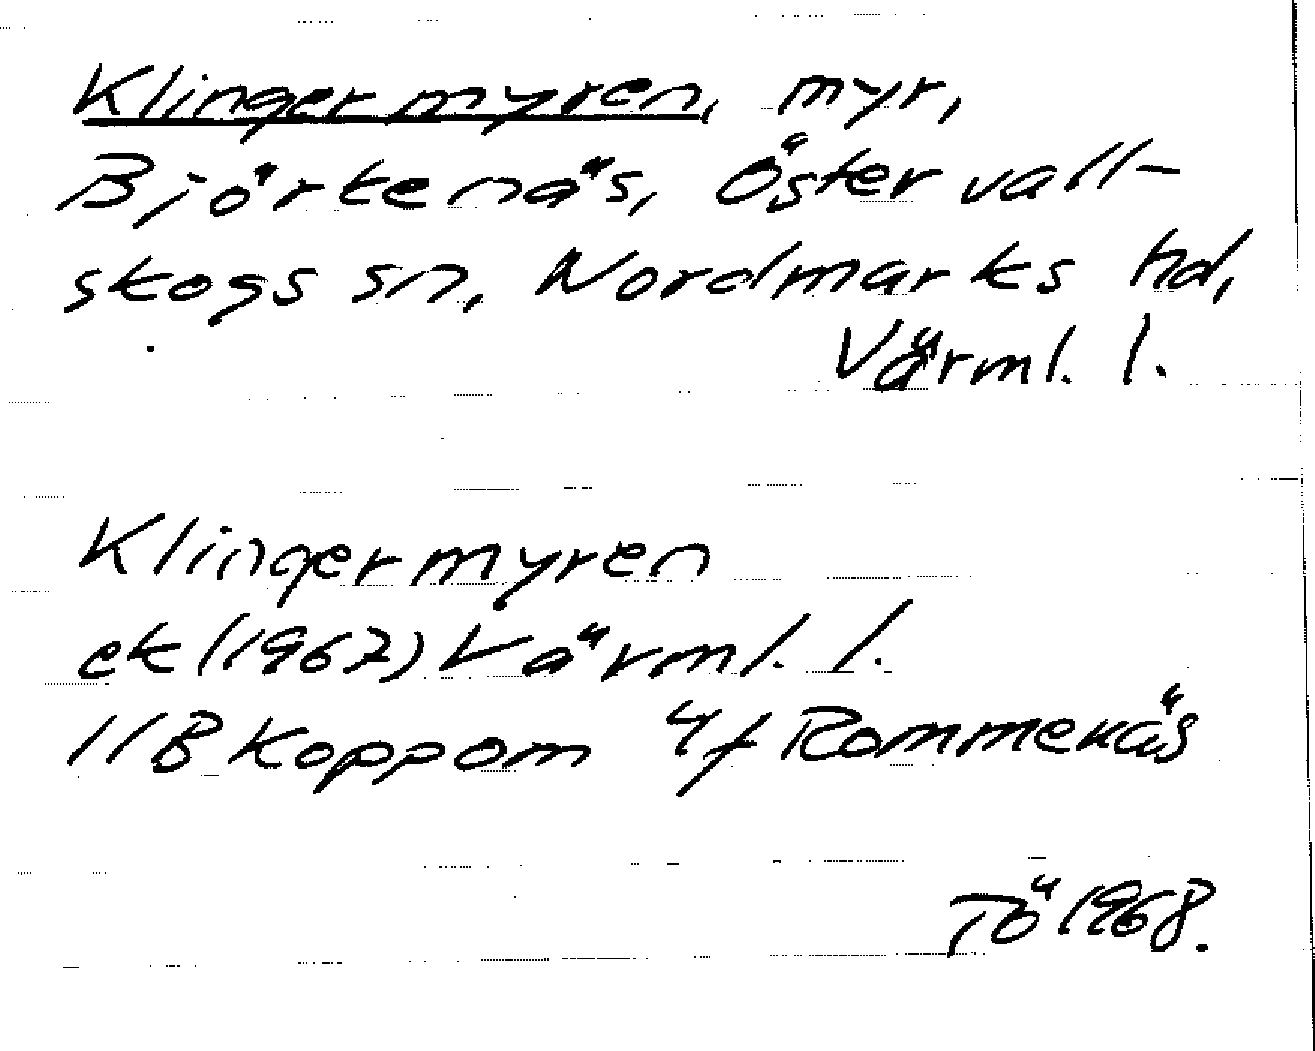 Klingermyren, myr,
Björkenäs, Östervall-
skogs sn, Nordmarks hd,
Värml. l.
Klingermyren
ek (1967) Värml. l.
11B Koppom 4f Rommenäs
TÖ 1968.